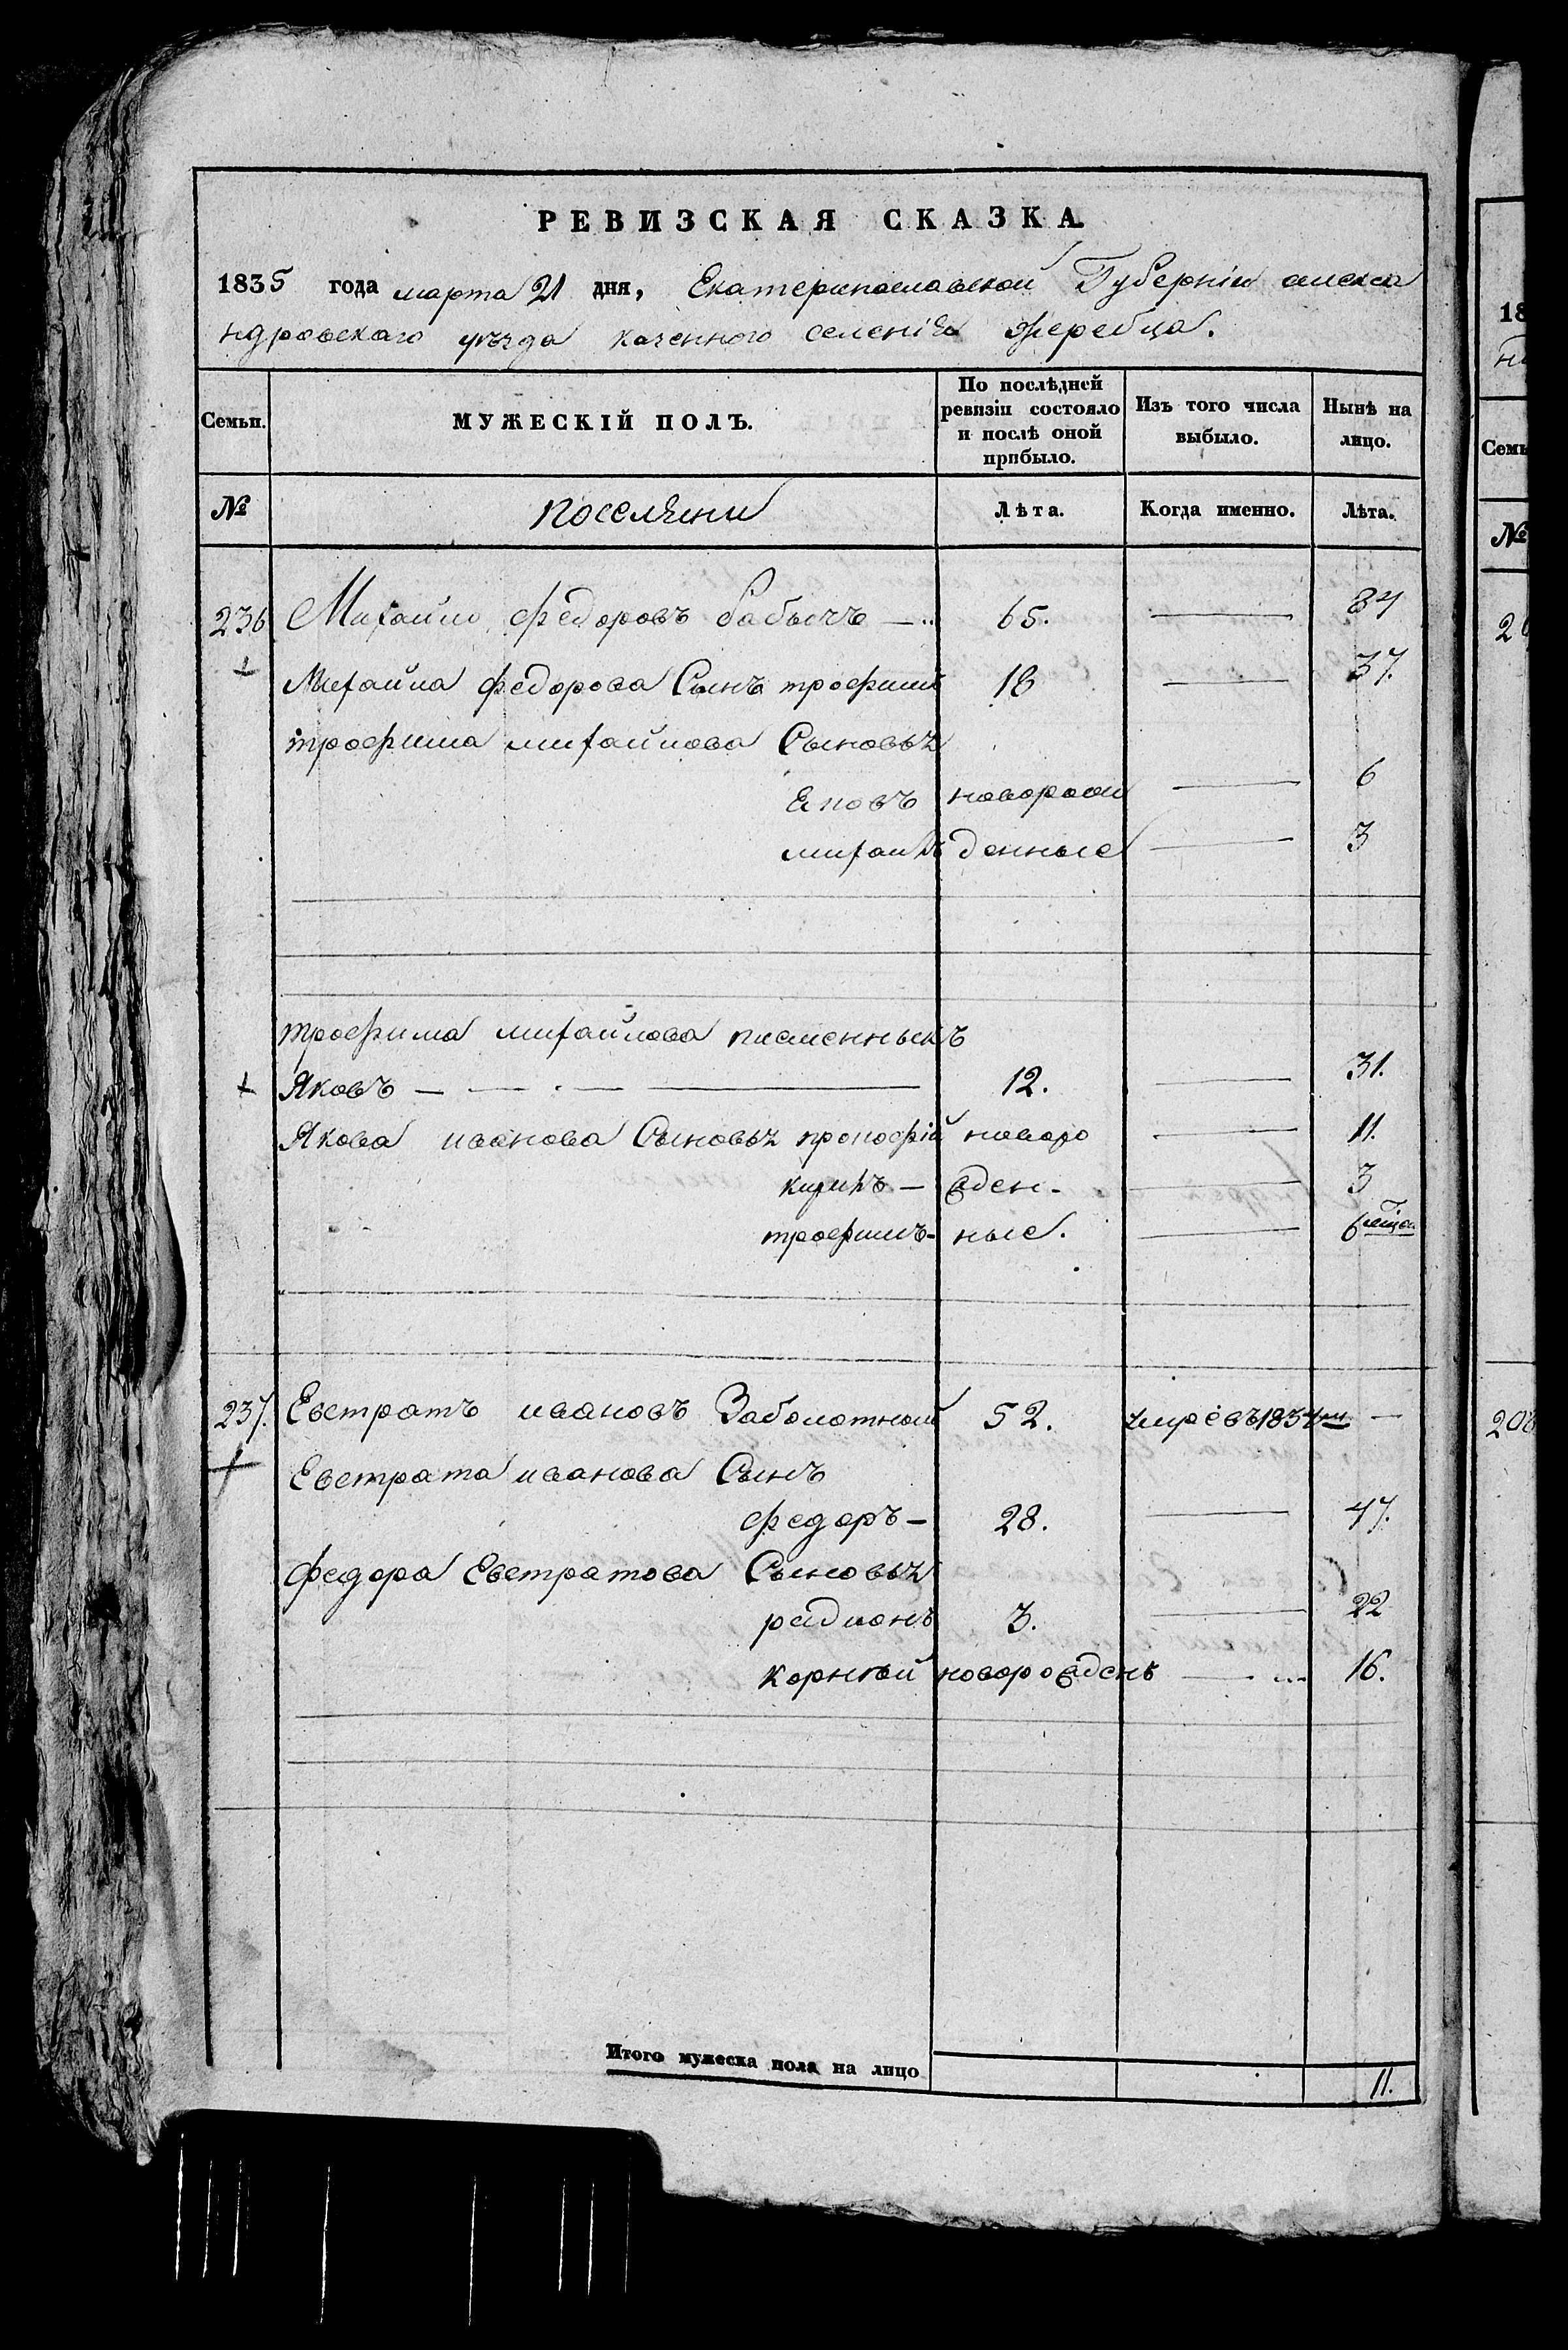 РЕВИЗСКАЯ СКАЗКА.
1835 года марта 21 дня, Екатеринославской Губерніи алекса
ндровскаго уѣзда казенного селенія Жеребца.
Семьи. МУЖЕСКІЙ ПОЛЪ. По послѣдней ревизіи состояло и послѣ оной прибыло. Изъ того числа выбыло. Нынѣ на лицо.
№ поселяни Лѣта. Когда именно. Лѣта.
236 Михайло федоровъ бабычъ — 65. — 84
Михайла федорова Сынъ трофимъ 18 — 37.
трофима михайлова Сыновья
новорож — 6
михаилъ денные — 3
трофима михайлова племенныкъ
Яковъ — 12. — 31.
Якова иванова Сыновья прокофій новоро — 11.
— жден- — 3
трофимъ- ные. — 6 меця
237. Евстратъ ивановъ Заболотный 52. умре въ 1834м —
Евстрата иванова Сынъ
федоръ — 28. — 47.
федора Евстратова Сыновья
радионъ 3. — 22
корнѣй новорожденъ — 16.
Итого мужеска пола на лицо 11.
18
Семь
№